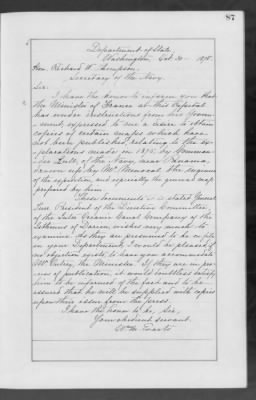 87
Department of State,
Washington, Oct. 30 1878.
Hon. Richard W. Thompson,
Secretary of the Navy.
Sir:
I have the honor to inform you that
the Minister of France at this Capital
has under instructions from his Govern-
ment, expressed to me a desire to obtain
copies of certain maps which have
not been published, relating to the ex-
plorations made in 1875 by Comman-
der Lull, of the Navy, near Panama,
drawn up by Mr. Menocal the engineer
of the expedition, and especially the general map
prepared by him.
These documents it is stated General
Turr President of the Direction Committee
of the Inter Oceanic Canal Company of the
Isthmus of Darien, wishes very much to
examine. As they are presumed to be on file
in your Department, I would be pleased, if
no objection exists, to have you accommodate
Mr. Outrey, the Minister. If they are in pro-
cess of publication, it would doubtless satisfy
him to be informed of the fact and to be
assured that he will be supplied with copies
upon their issue from the press.
I have the honor to be, Sir,
Your obedient servant.
Wm. M. Evarts